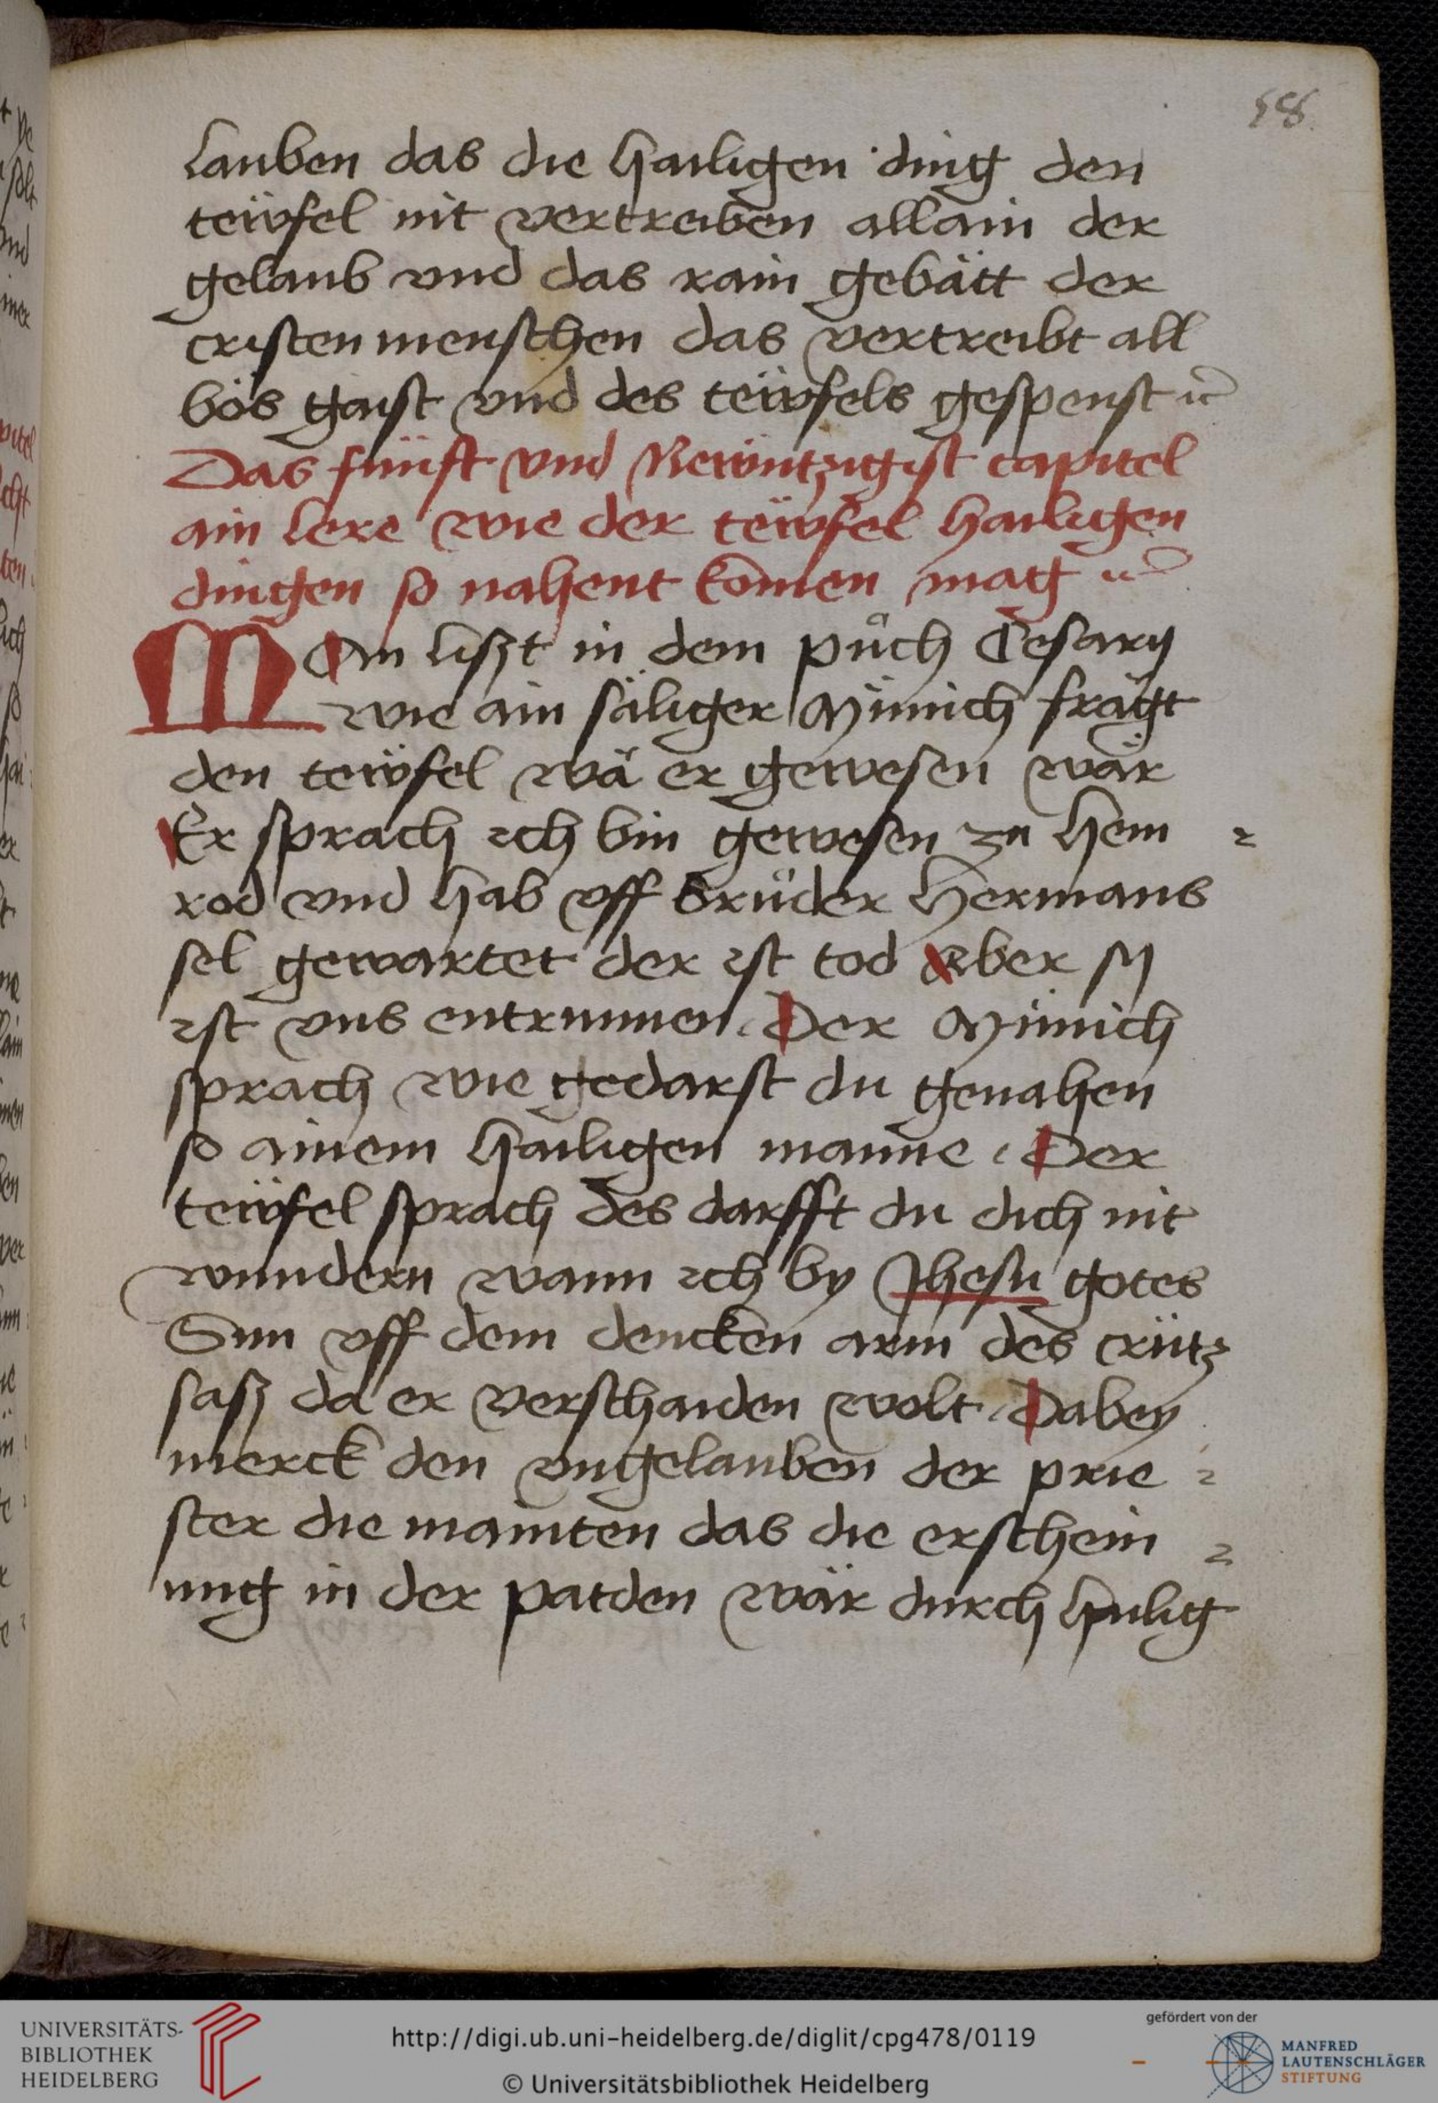 58.
lauben das die hailigen ding den
teẅfel nit vertreiben allain der
gelaub vnd das rain gebätt der
cristenmenschen das vertreibt all
bös gaist vnd des teẅfels gespenst ⁊c̃
Das fünft vnd Newntzigist capitel
ain lere wie der teẅfel hailigen
dingen so nahent komen mag ⁊c̃
MAn liszt in dem půch Cesarÿ
wie ain säliger Münich frägt
den teẅfel wä er gewesen wär
Er sprach ich bin gewesen zu hem
rod vnd hab vff brůder Hermans
sel gewartet der ist tod aber sÿ
ist vns entrunnen. Der Münich
sprach wie gedarst du genahen
so ainem hailigen manne. Der
teẅfel sprach des darfft du dich nit
wundern wann ich by Jhesu gotes
Sun vff dem dencken arm des crütz
sasz da er verschaiden wolt. Dabey
merck den vngelauben der prie
ster die mainten das die erschein
ung in der patden wär durch hailig
UNIVERSITÄTS-
BIBLIOTHEK
HEIDELBERG
http://digi.ub.uni-heidelberg.de/diglit/cpg478/0119
© Universitätsbibliothek Heidelberg
gefördert von der
MANFRED
LAUTENSCHLÄGER
STIFTUNG